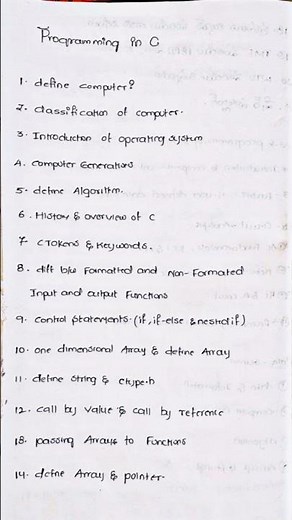 Programming in C
1. define computer?
2. classification of computer.
3. Introduction of operating system
4. computer Generations
5. define Algorithm.
6. History & overview of C
7 CTokens & Keywords.
8. diff b/w Formatted and Non-Formated
Input and output Functions
9. control statements. (if, if-else & nested if)
10. one dimensional Array & define Array
11. define string & ctype.h
12. call by value & call by reference
13. passing Arrays to Functions
14. define Array & pointer.